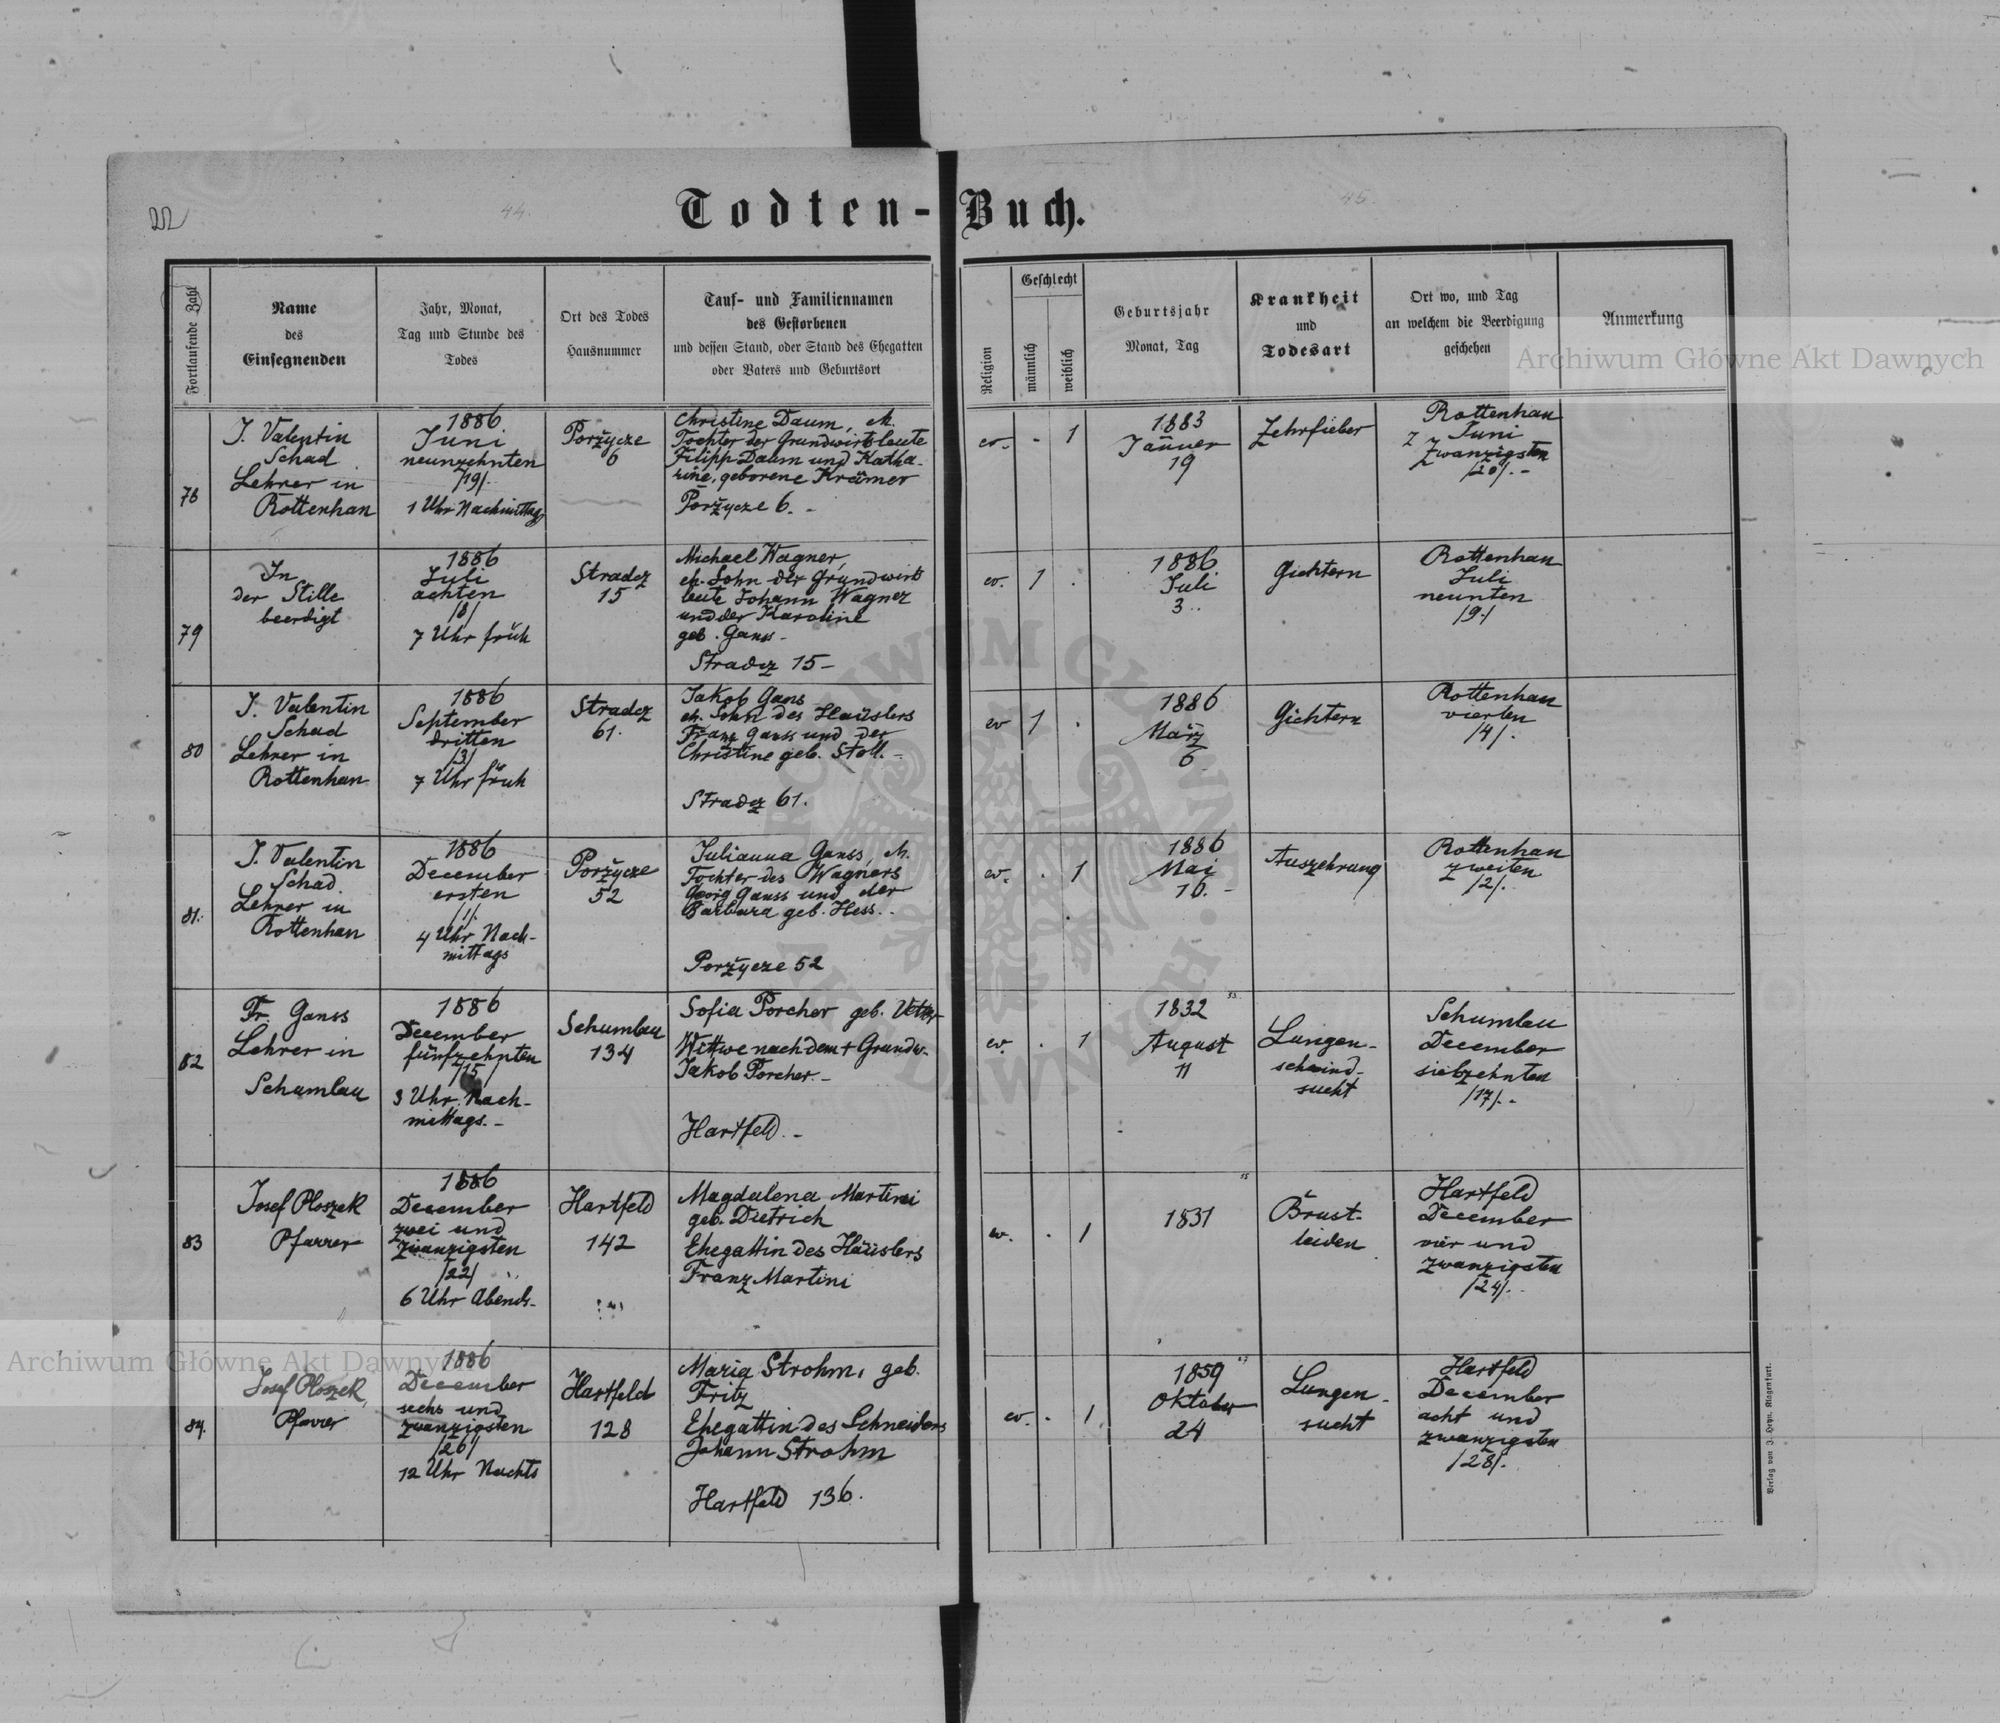 22
44.
45.
Todten-Buch.
Fortlaufende Zahl
Name
des
Einsegnenden
Jahr, Monat,
Tag und Stunde des
Todes
Ort des Todes
Hausnummer
Tauf- und Familiennamen
des Gestorbenen
und dessen Stand, oder Stand des Ehegatten
oder Vaters und Geburtsort
Religion
Geschlecht
männlich
weiblich
Geburtsjahr
Monat, Tag
Krankheit
und
Todesart
Ort wo, und Tag
an welchem die Beerdigung
geschehen
Anmerkung
Archiwum Główne Akt Dawnych
78
J. Valentin
Schad
Lehrer in
Rottenhan
1886
Juni
neunzehnten
/19/.
1 Uhr Nachmittag
Poržycze
6
Christine Daum, eh.
Tochter der Grundwirtsleute
Filipp Daum und Katha-
rine, geborene Krämer
Poržycze 6. -
ev. - 1
1883
Jänner
19
Zehrfieber
Rottenhan
Juni
zwanzigsten
/20/. -
79
In
der Stille
beerdigt
1886
Juli
achten
/8/
7 Uhr früh
Stradcz
15
Michael Wagner,
eh. Sohn der Grundwirts
leute Johann Wagner
und der Karoline
geb. Ganss -
Stradcz 15 -
ev. 1 .
1886
Juli
3..
Gichtern
Rottenhan
Juli
neunten
/9./
80
J. Valentin
Schad
Lehrer in
Rottenhan
1886
September
dritten
/3/
7 Uhr früh
Stradcz
61.
Jakob Gans
eh. Sohn des Häuslers
Franz Ganss und der
Christine geb. Stoll. -
Stradcz 61.
ev 1 .
1886
März
6
Gichtern
Rottenhan
vierten
/4/.
81.
J. Valentin
Schad.
Lehrer in
Rottenhan
1886
December
ersten
/1/.
4 Uhr Nach-
mittags
Poržycze
52
Julianna Ganss, eh.
Tochter des Wagners
Georg Ganss und der
Barbara geb. Hess. -
Poržycze 52
ev. . 1
1886
Mai
16. -
Auszehrung
Rottenhan
zweiten
/2/.
82
Fr. Ganss
Lehrer in
Schumlau
1886
December
fünfzehnten
/15/
3 Uhr Nach-
mittags. -
Schumlau
134
Sofia Porcher geb. Vetter
Wittwe nach dem + Grundw.
Jakob Porcher. -
Hartfeld. -
ev. . 1
1832
August
11
Lungen-
schwind-
sucht
Schumlau
December
siebzehnten
/17/. -
83
Josef Ploszek
Pfarrer
1886
December
zwei und
zwanzigsten
/22/
6 Uhr Abends.
Hartfeld
142
Magdalena Martini
geb. Dietrich
Ehegattin des Häuslers
Franz Martini
ev. . 1
55
1831
Brust-
leiden
Hartfeld
December
vier und
zwanzigsten
/24/.
84.
Josef Ploszek,
Pfarrer
1886
December
sechs und
zwanzigsten
/26/
12 Uhr Nachts
Hartfeld
128
Maria Strohm, geb.
Fritz
Ehegattin des Schneiders
Johann Strohm
Hartfeld 136.
ev. . 1
1859
Oktober
24
Lungen-
sucht
Hartfeld
December
acht und
zwanzigsten
/28/.
Archiwum Główne Akt Dawnych
Verlag von J. Heyn, Klagenfurt.
ARCHIWUM GŁÓWNE AKT DAWNYCH